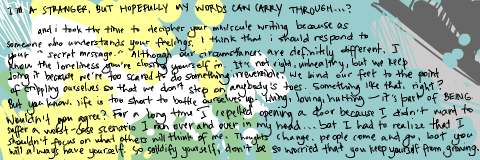 I'M A STRANGER, BUT HOPEFULLY MY WORDS CAN CARRY THROUGH...?
and i took the time to decipher your miniscule writing because as
someone who understands your feelings, I think that i should respond to
your "secret message." Although our circumstances are definitly different, I
know the loneliness you're closing yourself in. It's not right, unhealthy, but we keep
doing it because we're too scared to do something irreversible. We bind our feet to the point
of crippling ourselves so that we don't step on anybody's toes. Something like that, right?
But you know. life is too short to bottle ourselves up. living, loving, hurting - it's part of BEING.
Wouldn't you agree? For a long time I repelled opening a door because I didn't want to
suffer a worst-case scenario I ran over and over in my head... but I had to realize that I
shouldn't focus on what others will think of me. Thoughts change. people come and go. but you
will always have yourself. so solidify yourself, don't be so worried that you keep yourself from growing.